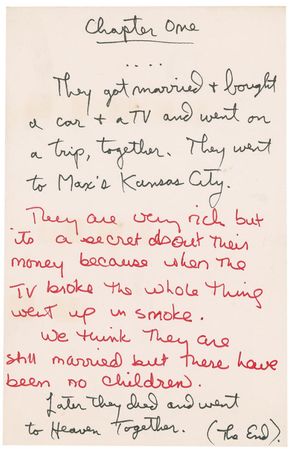 Chapter One
....
They got married + bought
a car + a TV and went on
a trip, together. They went
to Max's Kansas City.
They are very rich but
its a secret about their
money because when the
TV broke the whole thing
went up in smoke.
We think they are
still married but there have
been no children.
Later they died and went
to Heaven Together. (The End).